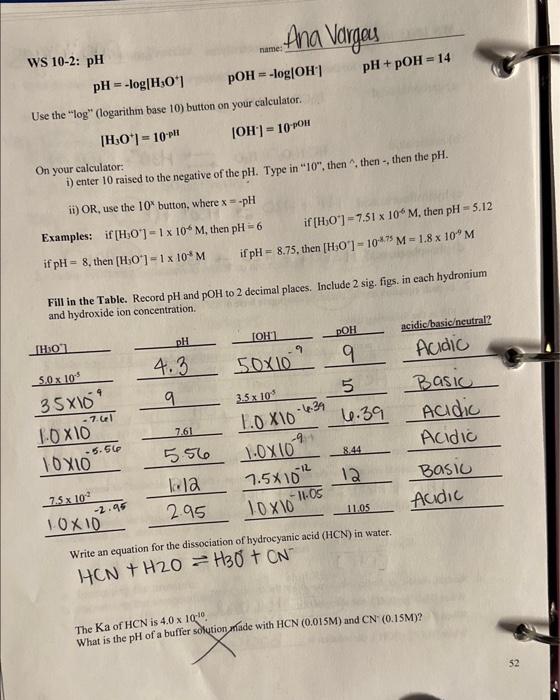 name: Ana Vargas
WS 10-2: pH
pH = -log[H₃O⁺] pOH = -log[OH⁻] pH + pOH = 14
Use the "log" (logarithm base 10) button on your calculator.
[H₃O⁺] = 10⁻ᵖᴴ [OH⁻] = 10⁻ᵖᴼᴴ
On your calculator:
i) enter 10 raised to the negative of the pH. Type in "10", then ^, then -, then the pH.
ii) OR, use the 10ˣ button, where x = -pH
Examples: if [H₃O⁺] = 1 x 10⁻⁶ M, then pH = 6 if [H₃O⁺] = 7.51 x 10⁻⁶ M, then pH = 5.12
if pH = 8, then [H₃O⁺] = 1 x 10⁻⁸ M if pH = 8.75, then [H₃O⁺] = 10⁻⁸·⁷⁵ M = 1.8 x 10⁻⁹ M
Fill in the Table. Record pH and pOH to 2 decimal places. Include 2 sig. figs. in each hydronium
and hydroxide ion concentration.
[H₃O⁺] pH [OH⁻] pOH acidic/basic/neutral?
5.0 x 10⁻⁵ 4.3 5.0x10⁻⁹ 9 Acidic
3.5x10⁻⁹ 9 3.5 x 10⁻⁵ 5 Basic
1.0x10⁻⁷·⁶¹ 7.61 1.0x10⁻⁶·³⁹ 6.39 Acidic
1.0x10⁻⁵·⁵⁶ 5.56 1.0x10⁻⁹ 8.44 Acidic
7.5 x 10⁻² 1.12 7.5x10⁻¹² 12 Basic
1.0x10⁻²·⁹⁵ 2.95 1.0x10⁻¹¹·⁰⁵ 11.05 Acidic
Write an equation for the dissociation of hydrocyanic acid (HCN) in water.
HCN + H2O ⇌ H3O⁺ + CN⁻
The Ka of HCN is 4.0 x 10⁻¹⁰.
What is the pH of a buffer solution made with HCN (0.015M) and CN⁻ (0.15M)?
52